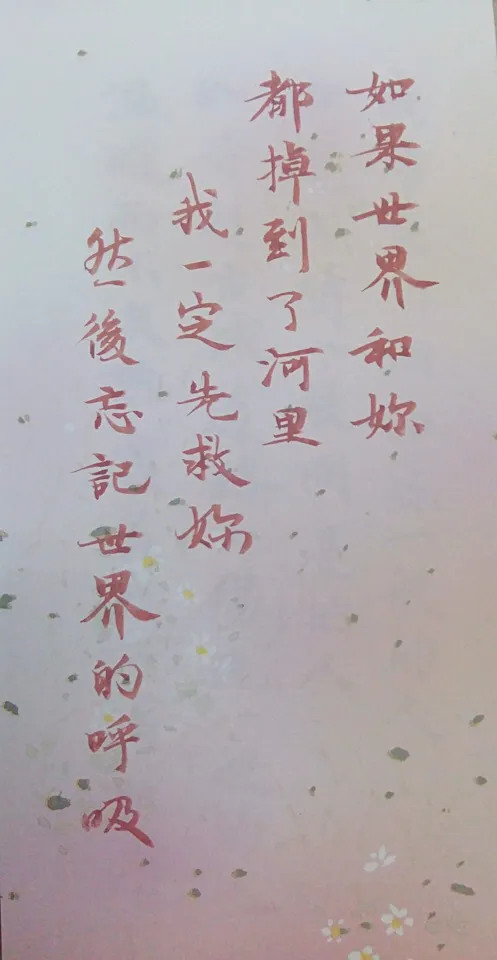 如果世界和妳
都掉到了河里
我一定先救妳
然後忘記世界的呼吸